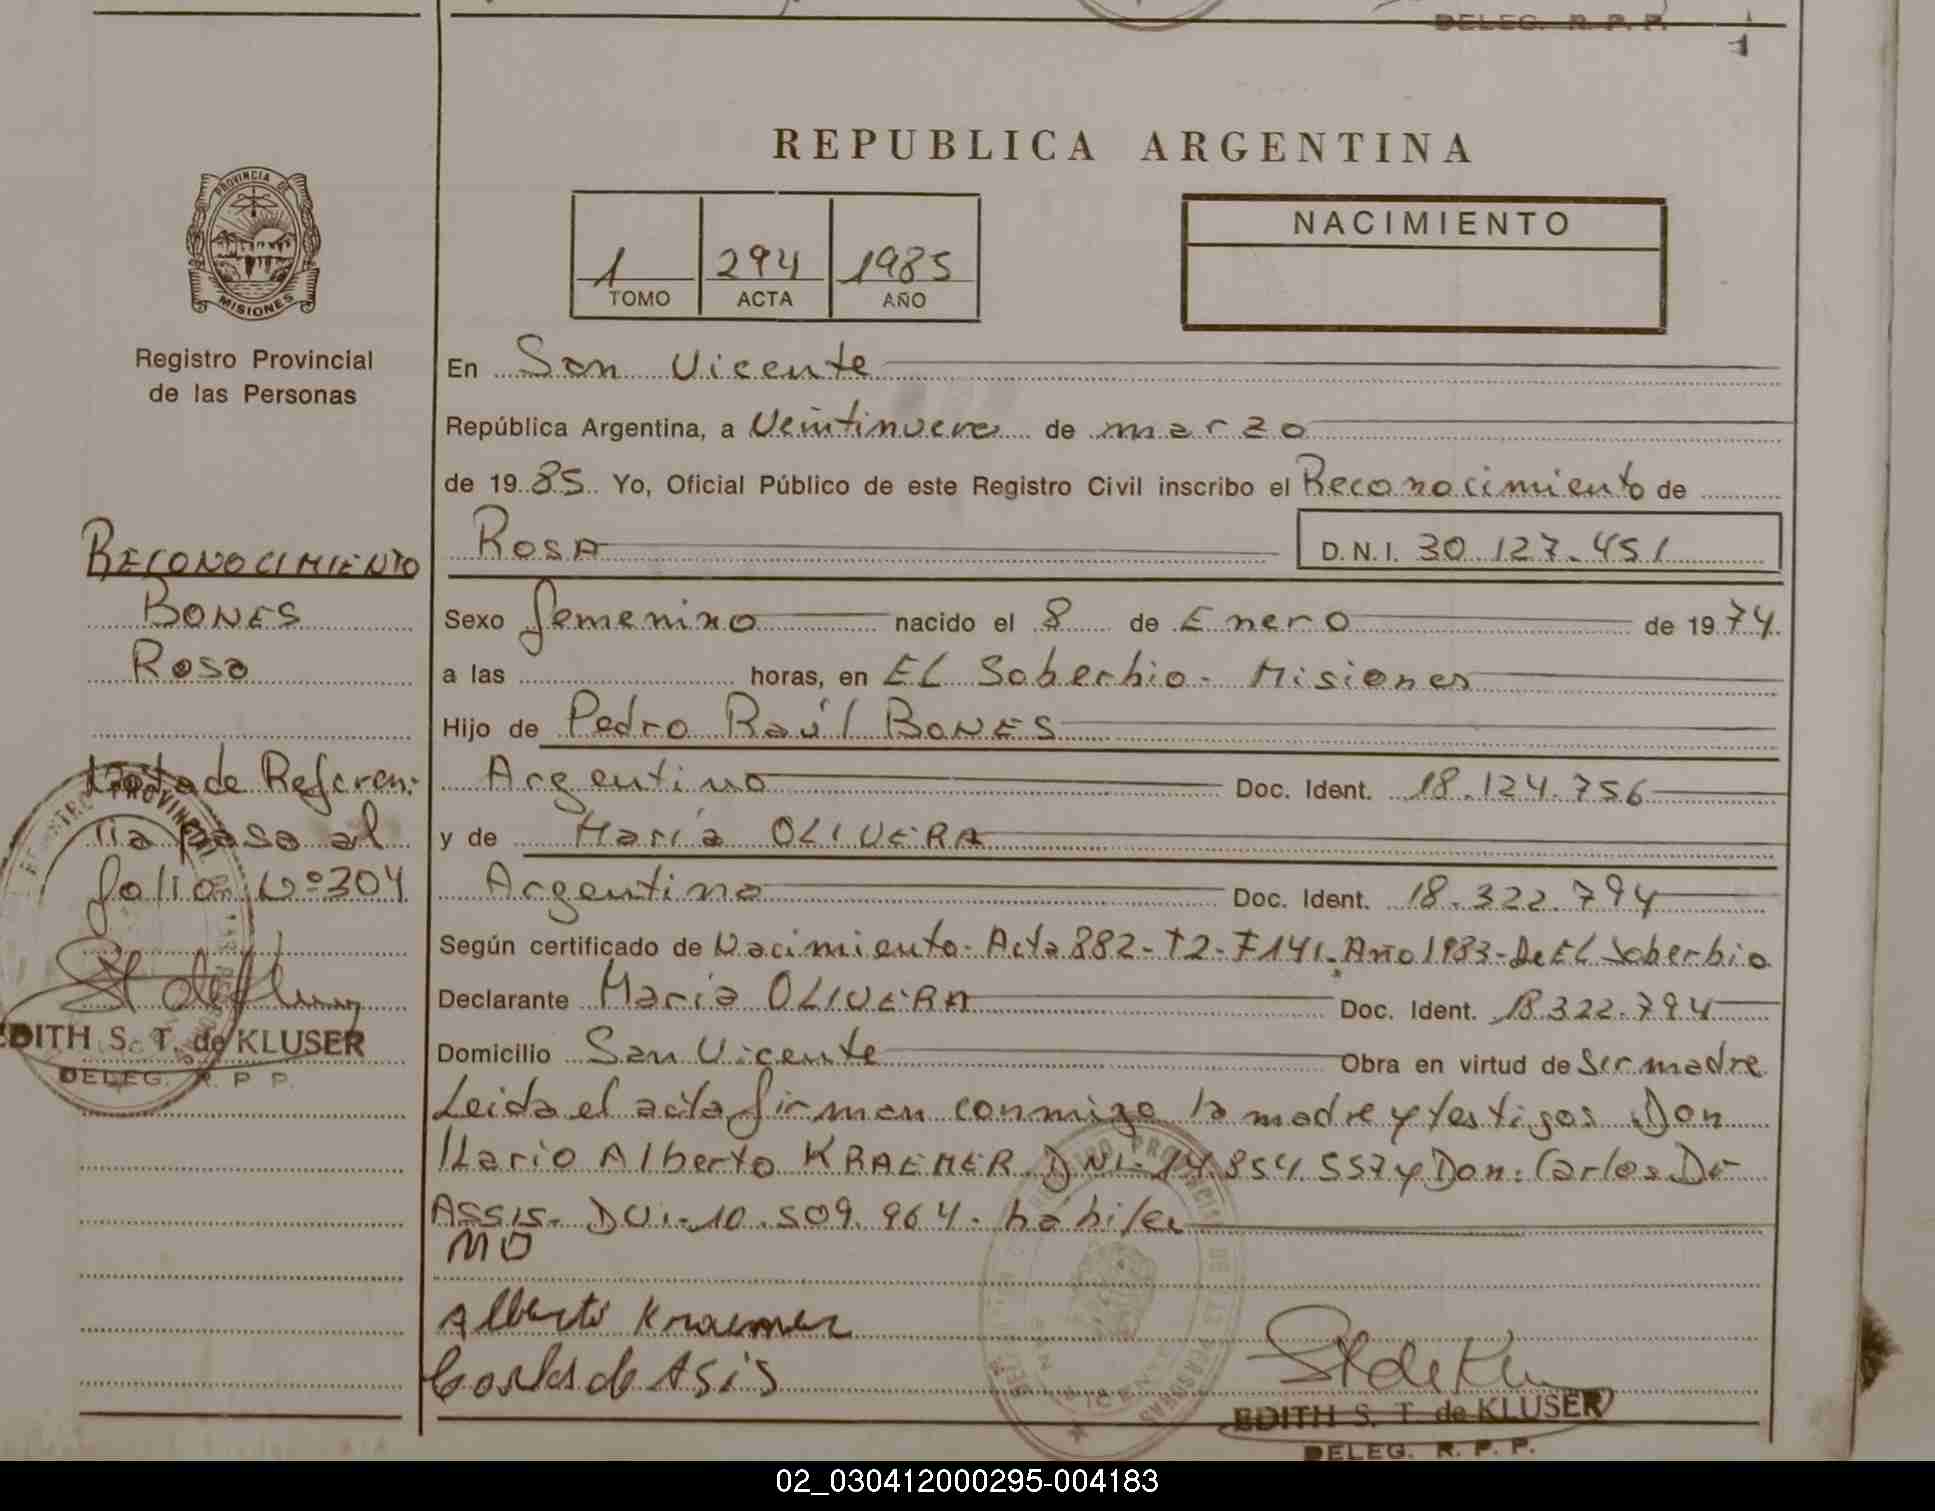 DELEG. R. P. P.
1
REPUBLICA ARGENTINA
PROVINCIA DE
MISIONES
Registro Provincial
de las Personas
1 294 1985
TOMO ACTA AÑO
NACIMIENTO
En San Vicente
República Argentina, a Veintinueve de marzo
de 1985 Yo, Oficial Público de este Registro Civil inscribo el Reconocimiento de
Rosa D.N.I. 30.127.451
Sexo femenino nacido el 8 de Enero de 1974.
a las horas, en EL Soberbio - Misiones
Hijo de Pedro Raúl BONES
Argentino Doc. Ident. 18.124.756
y de María OLIVERA
Argentina Doc. Ident. 18.322.794
Según certificado de Nacimiento - Acta 882 - T2 - F141. Año 1983 - De EL Soberbio
Declarante María OLIVERA Doc. Ident. 18.322.794
Domicilio San Vicente Obra en virtud de ser madre
Leida el acta firman conmigo la madre y testigos Don
Mario Alberto KRAEMER DNI. 14.854.557 y Don: Carlos DE
ASSIS. DNI. 10.509.964. habiles
MO
Alberto Kraemer
Carlos de Asis
EDITH S. T. de KLUSER
DELEG. R. P. P.
RECONOCIMIENTO
BONES
Rosa
Nota de Referen-
cia pasa al
folio Nº 304
EDITH S. T. de KLUSER
DELEG. R. P. P.
02_030412000295-004183